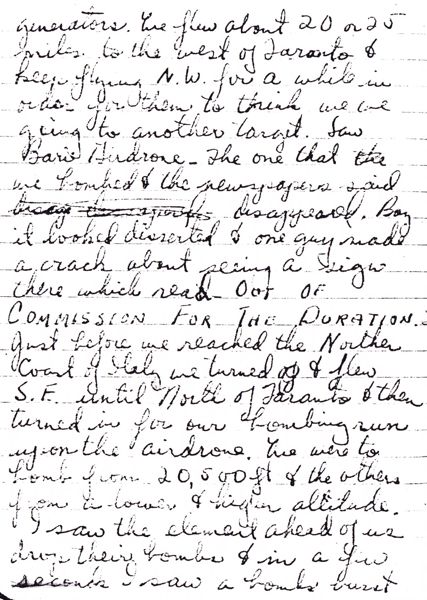 generators. We flew about 20 or 25
miles to the west of Taranto &
keep flying N.W. for a while in
order for them to think we we
going to another target. Saw
Bari Airdrone - The one that the
we bombed & the newspapers said
disappeared. Boy
it looked disserted & one guy made
a crack about seeing a sign
there which read - OUT OF
COMMISSION FOR THE DURATION.
Just before we reached the Norther
Coast of Italy we turned & flew
S.E. until North of Taranto & then
turned in for our bombing run
upon the airdrone. We were to
bomb from 20,500 ft & the others
from a lower & higher altitude.
I saw the element ahead of us
drop their bombs & in a few
seconds I saw a bombs burst